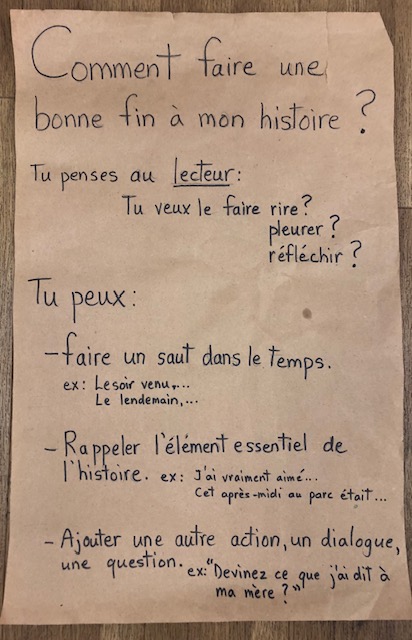 Comment faire une
bonne fin à mon histoire ?
Tu penses au lecteur :
Tu veux le faire rire ?
pleurer ?
réfléchir ?
Tu peux :
- faire un saut dans le temps.
ex : Le soir venu,...
Le lendemain,...
- Rappeler l'élément essentiel de
l'histoire. ex : J'ai vraiment aimé...
Cet après-midi au parc était...
- Ajouter une autre action, un dialogue,
une question. ex : "Devinez ce que j'ai dit à
ma mère ?"